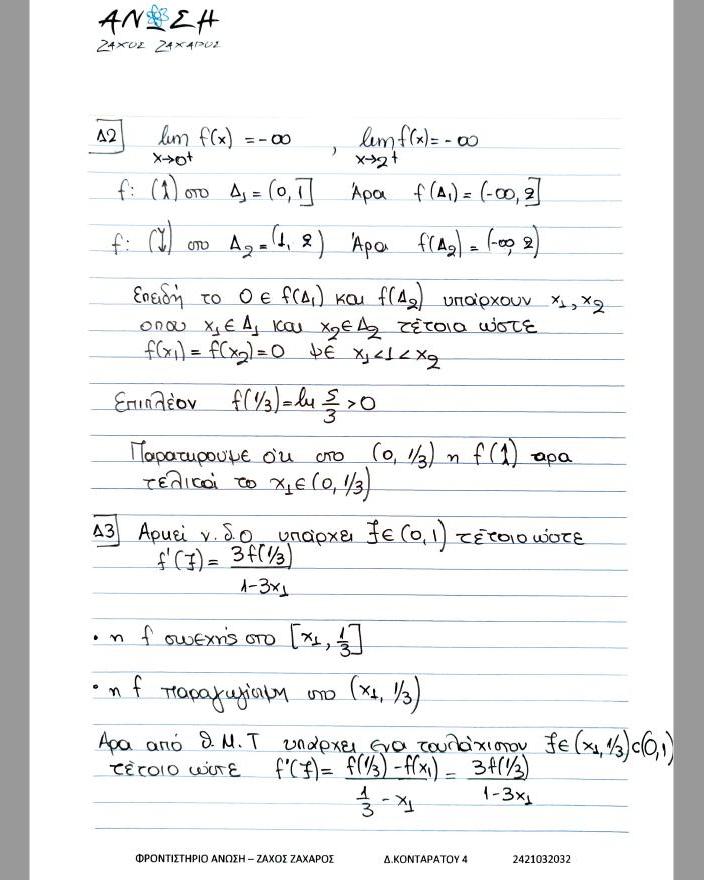 ΑΝΩΣΗ
ΖΑΧΟΣ ΖΑΧΑΡΟΣ
Δ2 lim f(x) = -∞ , lim f(x) = -∞
x→0⁺ x→2⁺
f: (↑) στο Δ₁ = (0, 1] Άρα f(Δ₁) = (-∞, 2]
f: (↓) στο Δ₂ = (1, 2) Άρα f(Δ₂) = (-∞, 2)
Επειδή το 0 ∈ f(Δ₁) και f(Δ₂) υπάρχουν x₁, x₂
οπου x₁ ∈ Δ₁ και x₂ ∈ Δ₂ τέτοια ώστε
f(x₁) = f(x₂) = 0 με x₁ < 1 < x₂
Επιπλέον f(1/3) = ln 5/3 > 0
Παρατηρουμε ότι στο (0, 1/3) η f (↑) αρα
τελικά το x₁ ∈ (0, 1/3)
Δ3 Αρκεί ν.δ.ο υπάρχει ξ ∈ (0, 1) τέτοιο ώστε
f'(ξ) = 3f(1/3) / 1-3x₁
• η f συνεχής στο [x₁, 1/3]
• η f παραγωγίσιμη στο (x₁, 1/3)
Αρα από Θ.Μ.Τ υπάρχει ένα τουλάχιστον ξ ∈ (x₁, 1/3) ⊂ (0, 1)
τέτοιο ώστε f'(ξ) = f(1/3) - f(x₁) / 1/3 - x₁ = 3f(1/3) / 1-3x₁
ΦΡΟΝΤΙΣΤΗΡΙΟ ΑΝΩΣΗ – ΖΑΧΟΣ ΖΑΧΑΡΟΣ Δ.ΚΟΝΤΑΡΑΤΟΥ 4 2421032032